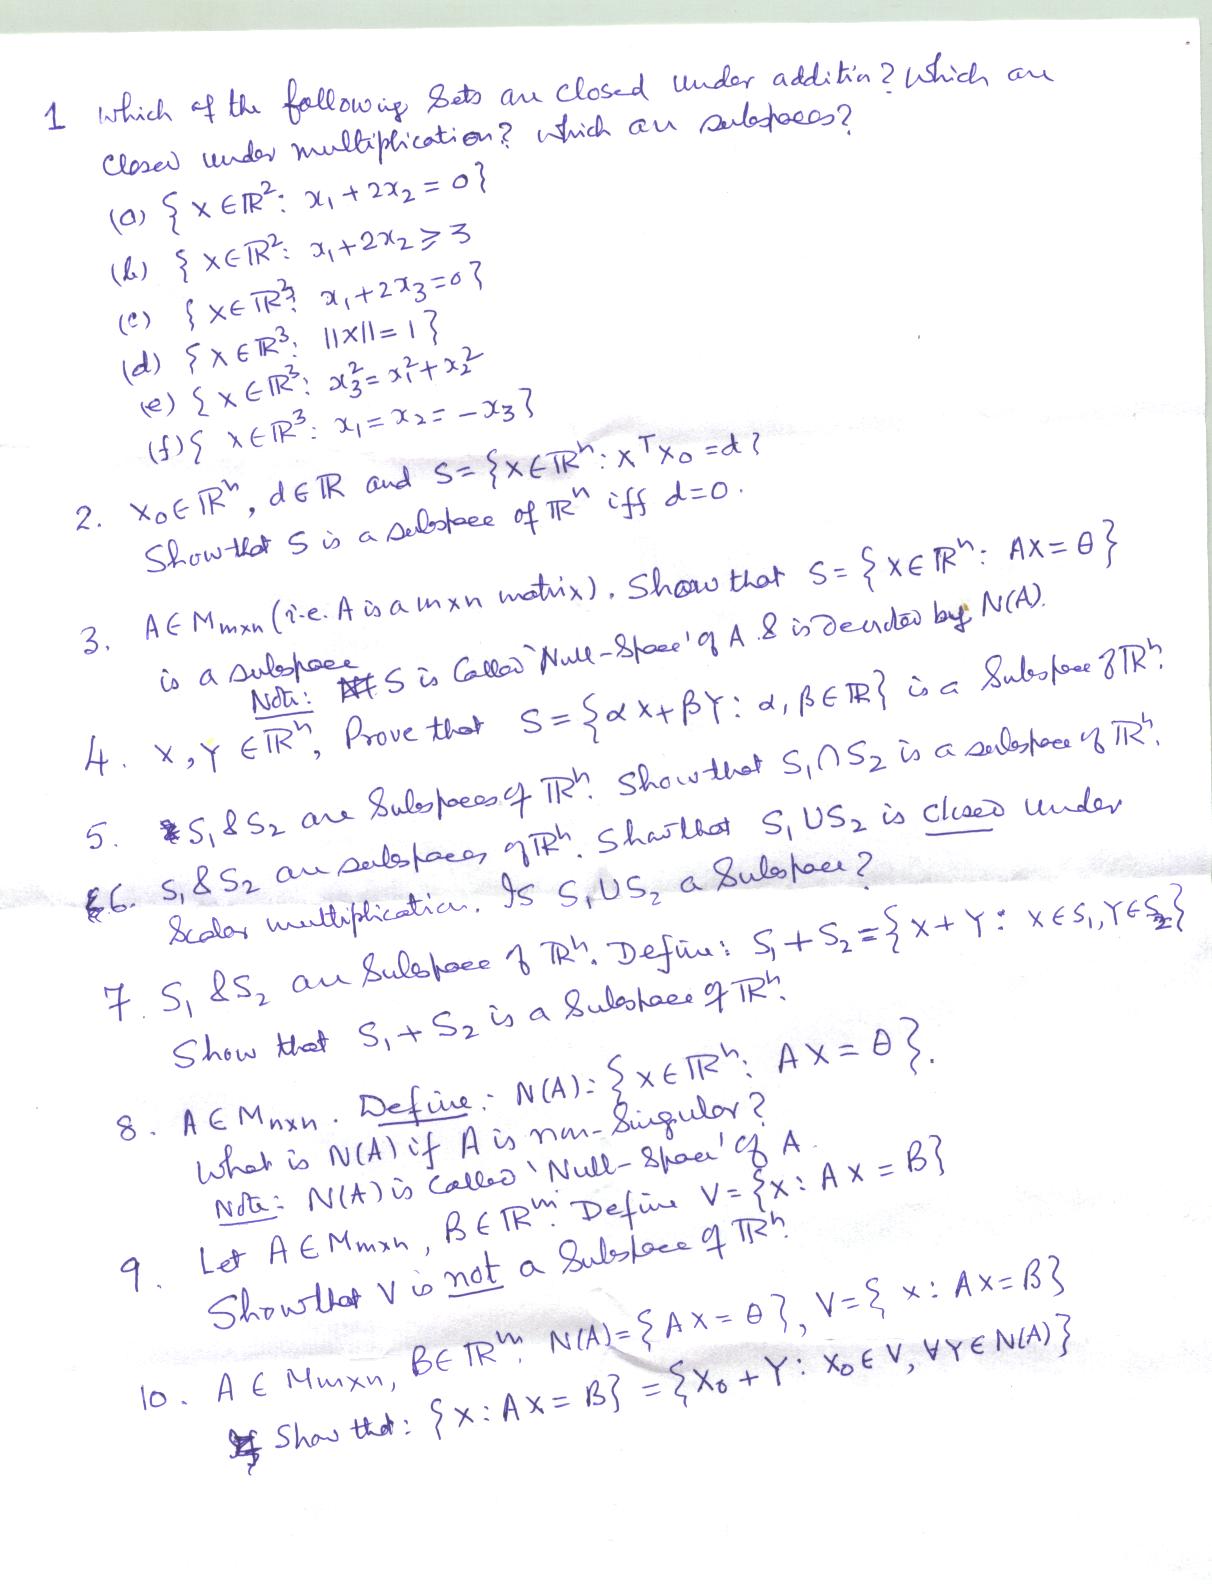 1 Which of the following Sets are closed under addition? Which are
closed under multiplication? Which are subspaces?
(a) { X ∈ ℝ²: x₁ + 2x₂ = 0}
(b) { X ∈ ℝ²: x₁ + 2x₂ ≥ 3
(c) { X ∈ ℝ³: x₁ + 2x₃ = 0}
(d) { X ∈ ℝ³: ||X|| = 1}
(e) { X ∈ ℝ³: x₃² = x₁² + x₂²
(f) { X ∈ ℝ³: x₁ = x₂ = - x₃}
2. X₀ ∈ ℝⁿ, d ∈ ℝ and S = {X ∈ ℝⁿ: XᵀX₀ = d}
Show that S is a subspace of ℝⁿ iff d=0.
3. A ∈ Mmxn (i.e. A is a mxn matrix). Show that S = { X ∈ ℝⁿ: AX = θ}
is a subspace
Note: S is Called 'Null-Space' of A & is denoted by N(A).
4. X, Y ∈ ℝⁿ, Prove that S = {αX + βY: α, β ∈ ℝ} is a Subspace of ℝⁿ.
5. S₁ & S₂ are Subspaces of ℝⁿ. Show that S₁ ∩ S₂ is a subspace of ℝⁿ.
6. S₁ & S₂ are subspaces of ℝⁿ. Show that S₁ ∪ S₂ is closed under
Scalar multiplication. Is S₁ ∪ S₂ a Subspace?
7. S₁ & S₂ are Subspace of ℝⁿ. Define: S₁ + S₂ = { X + Y: X ∈ S₁, Y ∈ S₂}
Show that S₁ + S₂ is a Subspace of ℝⁿ.
8. A ∈ Mnxn. Define: N(A) = { X ∈ ℝⁿ: AX = θ}.
What is N(A) if A is non-Singular?
Note: N(A) is called 'Null-Space' of A.
9. Let A ∈ Mmxn, B ∈ ℝᵐ. Define V = {X: AX = B}
Show that V is not a Subspace of ℝⁿ.
10. A ∈ Mmxn, B ∈ ℝᵐ, N(A) = {AX = θ}, V = { X: AX = B}
Show that: {X: AX = B} = {X₀ + Y: X₀ ∈ V, ∀Y ∈ N(A)}